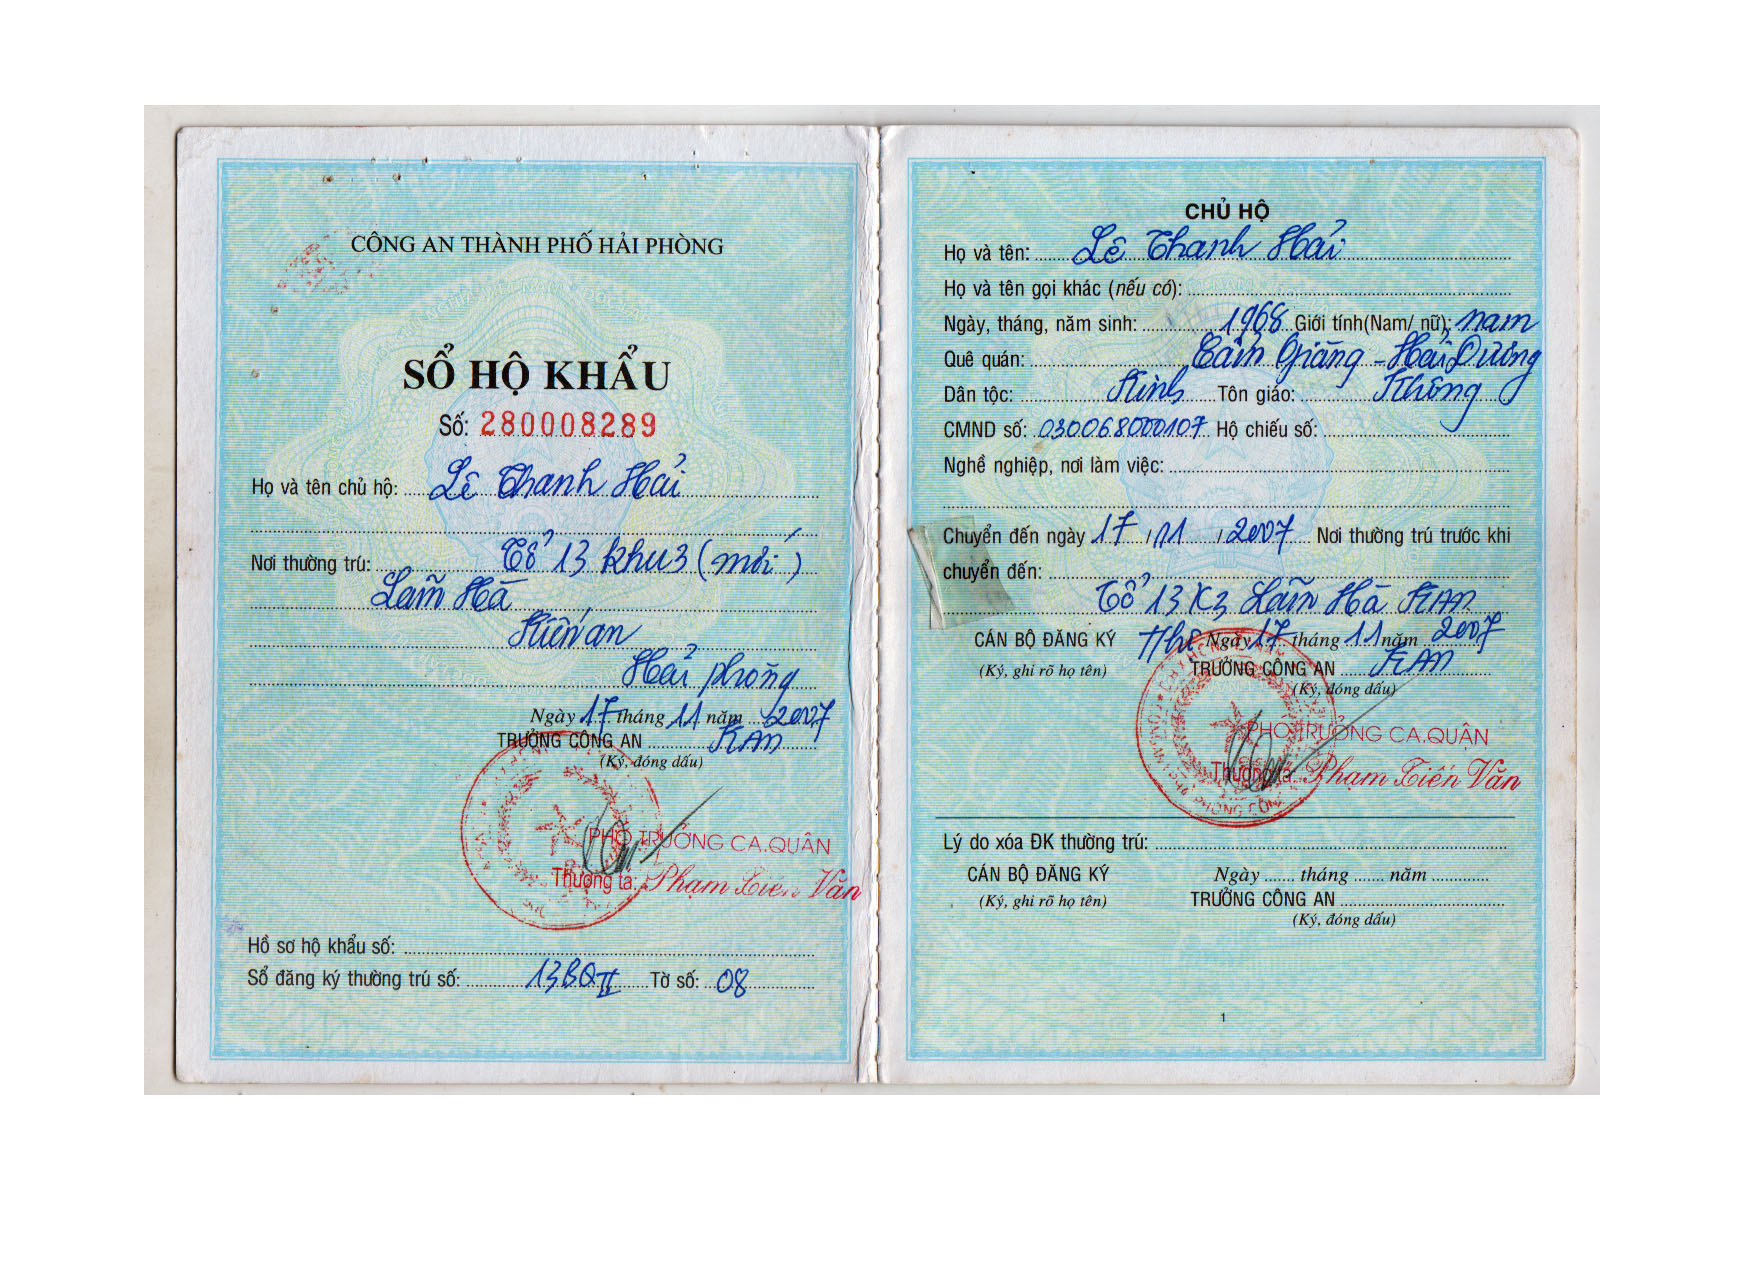 CÔNG AN THÀNH PHỐ HẢI PHÒNG
SỔ HỘ KHẨU
Số: 280008289
Họ và tên chủ hộ: Lê Thanh Hải
Nơi thường trú: Tổ 13 khu 3 (mới)
Lãm Hà
Kiến an
Hải phòng
Ngày 17 tháng 11 năm 2007
TRƯỞNG CÔNG AN KAN
(Ký, đóng dấu)
PHÓ TRƯỞNG CA.QUẬN
Thượng tá: Phạm Tiến Văn
Hồ sơ hộ khẩu số:
Sổ đăng ký thường trú số: 13BQII Tờ số: 08
CHỦ HỘ
Họ và tên: Lê Thanh Hải
Họ và tên gọi khác (nếu có):
Ngày, tháng, năm sinh: 1968 Giới tính(Nam/ nữ): nam
Quê quán: Cẩm Giàng - Hải Dương
Dân tộc: Kinh Tôn giáo: Không
CMND số: 030068000107 Hộ chiếu số:
Nghề nghiệp, nơi làm việc:
Chuyển đến ngày 17 / 11 / 2007 Nơi thường trú trước khi
chuyển đến:
Tổ 13 K3 Lãm Hà KAN
CÁN BỘ ĐĂNG KÝ Ngày 17 tháng 11 năm 2007
(Ký, ghi rõ họ tên) TRƯỞNG CÔNG AN KAN
(Ký, đóng dấu)
PHÓ TRƯỞNG CA.QUẬN
Thượng tá: Phạm Tiến Văn
Lý do xóa ĐK thường trú:
CÁN BỘ ĐĂNG KÝ Ngày ....... tháng ....... năm .............
(Ký, ghi rõ họ tên) TRƯỞNG CÔNG AN
(Ký, đóng dấu)
1